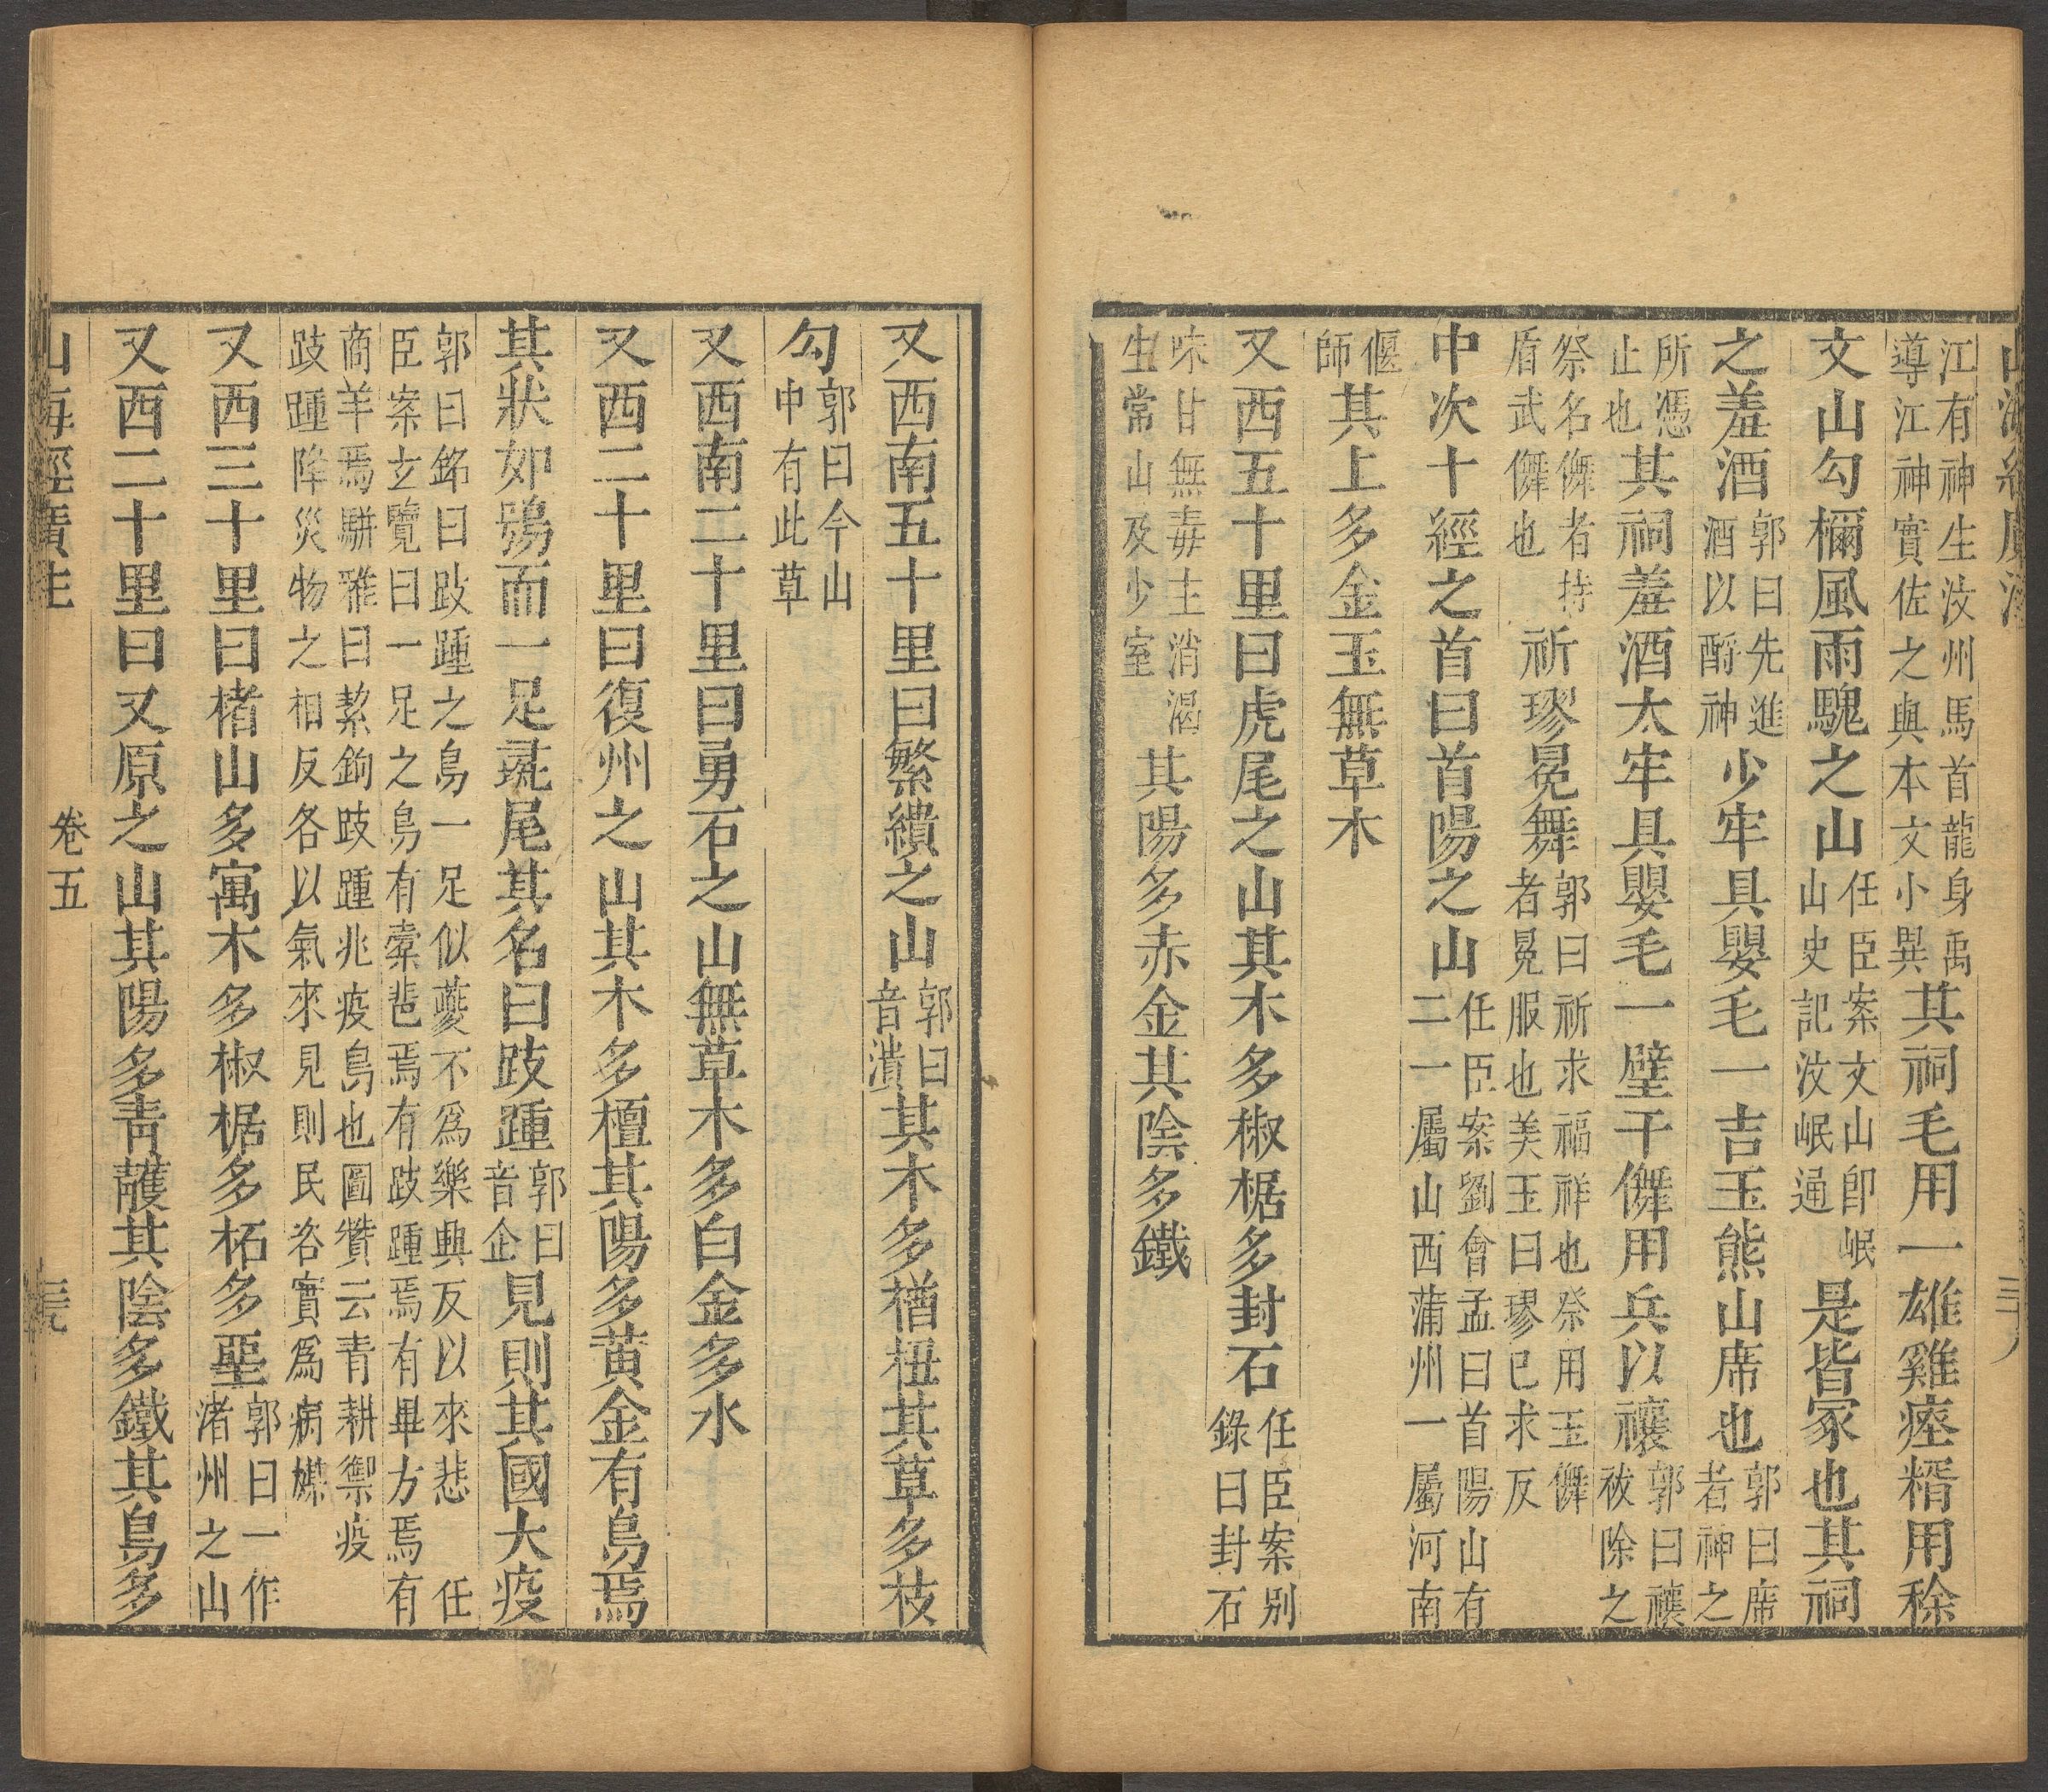 江有神生汶州馬首龍身禹
導江神實佐之與本文小異
其祠毛用一雄雞瘞糈用稌
文山勾檷風雨騩之山
任臣案文山卽岷
山史記汶岷通
是皆冢也其祠
之羞酒
郭曰先進
酒以酹神
少牢具嬰毛一吉玉熊山席也
郭曰席
者神之
所憑
止也
其祠羞酒太牢具嬰毛一璧干儛用兵以禳
郭曰禳
祓除之
祭名儛者持
盾武儛也
祈璆冕舞
郭曰祈求福祥也祭用玉儛
者冕服也美玉曰璆已求反
中次十經之首曰首陽之山
任臣案劉會孟曰首陽山有
二一屬山西蒲州一屬河南
偃
師
其上多金玉無草木
又西五十里曰虎尾之山其木多椒椐多封石
任臣案別
錄曰封石
味甘無毒主消渴
生常山及少室
其陽多赤金其陰多鐵
又西南五十里曰繁繢之山
郭曰
音潰
其木多楢杻其草多枝
勾
郭曰今山
中有此草
又西南二十里曰勇石之山無草木多白金多水
又西二十里曰復州之山其木多檀其陽多黃金有鳥焉
其狀如鴞而一足彘尾其名曰跂踵
郭曰
音企
見則其國大疫
郭曰銘曰跂踵之鳥一足似夔不爲樂興反以來悲 任
臣案玄覽曰一足之鳥有橐𩇯焉有跂踵焉有畢方焉有
商羊焉駢雅曰絜鉤跂踵兆疫鳥也圖贊云青耕禦疫
跂踵降災物之相反各以氣來見則民咨實爲病媒
又西三十里曰楮山多寓木多椒椐多柘多堊
郭曰一作
渚州之山
又西二十里曰又原之山其陽多青雘其陰多鐵其鳥多
山海經廣注 卷五